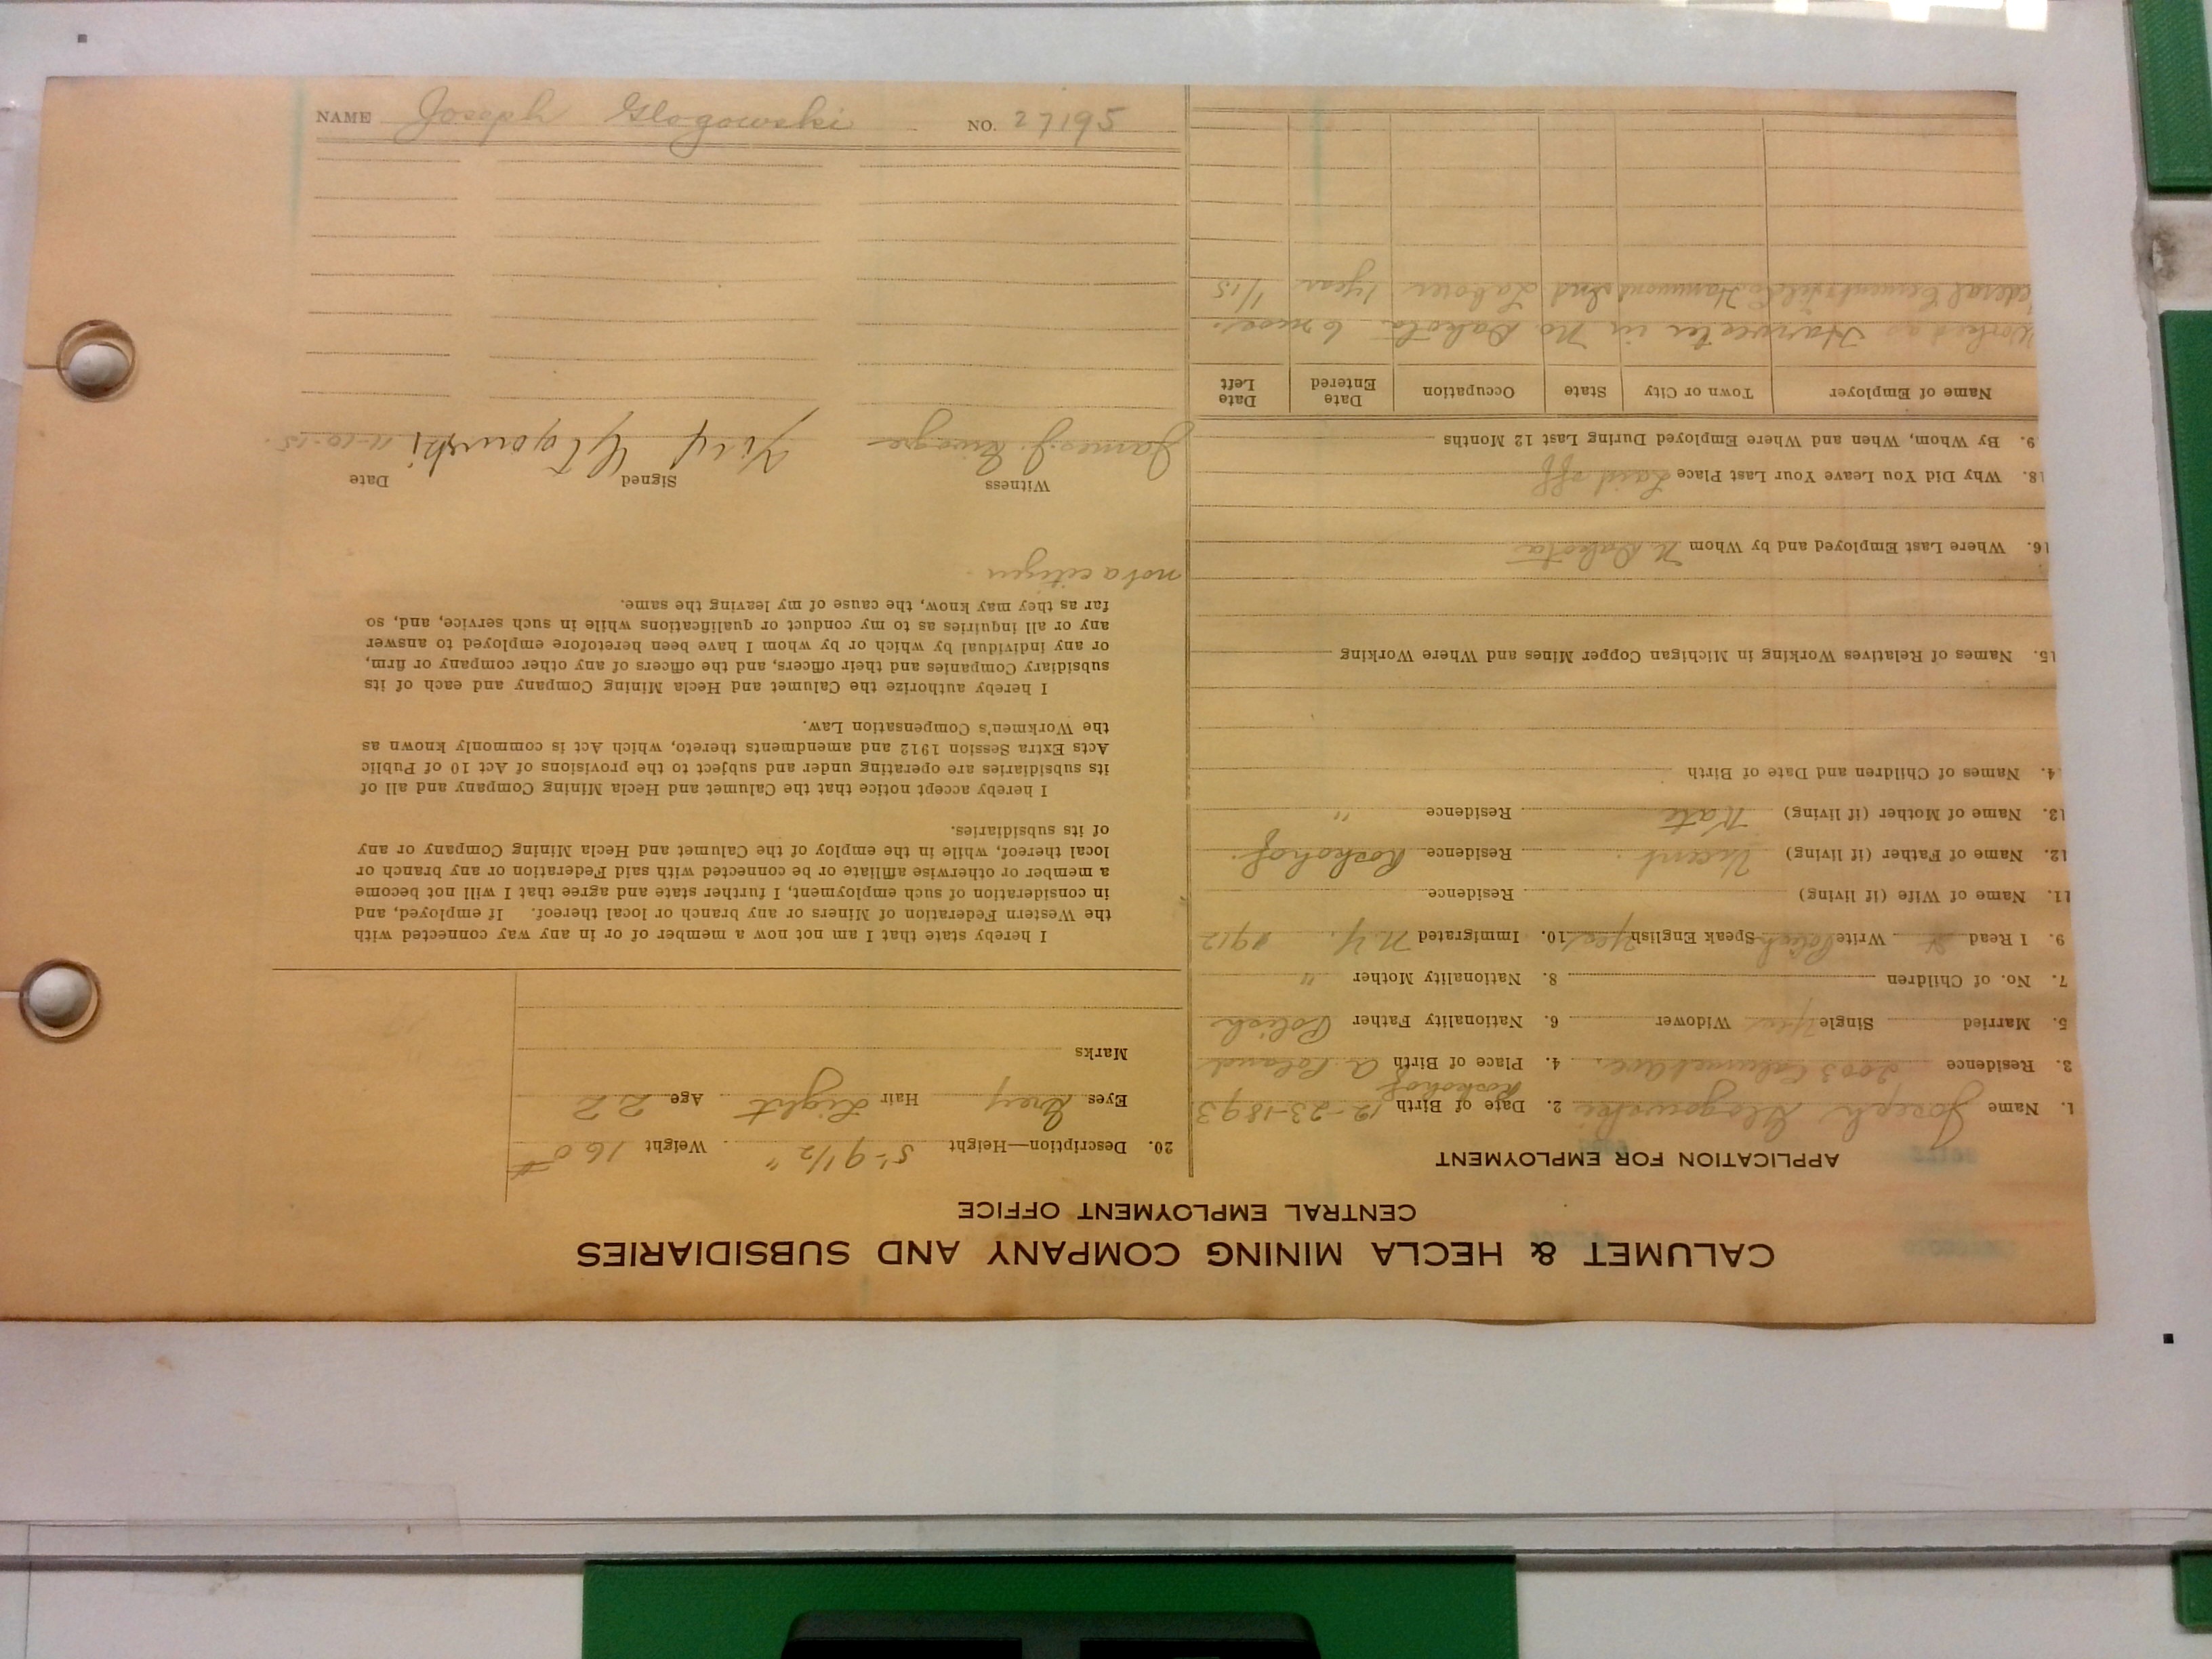 CALUMET & HECLA MINING COMPANY AND SUBSIDIARIES
CENTRAL EMPLOYMENT OFFICE
APPLICATION FOR EMPLOYMENT
1. Name Joseph Glogowski 2. Date of Birth 12-23-1893
3. Residence 2003 Calumet Ave. 4. Place of Birth Poland
5. Married Single Yes Widower 6. Nationality Father Polish
7. No. of Children 8. Nationality Mother "
9. I Read Write Polish Speak English Yes 10. Immigrated N.Y. 1912
11. Name of Wife (if living) Residence
12. Name of Father (if living) Vincent Residence
13. Name of Mother (if living) Kate Residence "
14. Names of Children and Date of Birth
15. Names of Relatives Working in Michigan Copper Mines and Where Working
16. Where Last Employed and by Whom N. Dakota
18. Why Did You Leave Your Last Place Laid off
19. By Whom, When and Where Employed During Last 12 Months
Name of Employer Town or City State Occupation Date Entered Date Left
Worked as Harvester in No Dakota 6 mos.
Federal Cement Tile Co. Hammond Ind Laborer 1 year 1/15
20. Description—Height 5'-9 1/2" Weight 160#
Eyes Grey Hair Light Age 22
Marks
I hereby state that I am not now a member of or in any way connected with
the Western Federation of Miners or any branch or local thereof. If employed, and
in consideration of such employment, I further state and agree that I will not become
a member or otherwise affiliate or be connected with said Federation or any branch or
local thereof, while in the employ of the Calumet and Hecla Mining Company or any
of its subsidiaries.
I hereby accept notice that the Calumet and Hecla Mining Company and all of
its subsidiaries are operating under and subject to the provisions of Act 10 of Public
Acts Extra Session 1912 and amendments thereto, which Act is commonly known as
the Workmen's Compensation Law.
I hereby authorize the Calumet and Hecla Mining Company and each of its
subsidiary Companies and their officers, and the officers of any other company or firm,
or any individual by which or by whom I have been heretofore employed to answer
any or all inquiries as to my conduct or qualifications while in such service, and, so
far as they may know, the cause of my leaving the same.
not a citizen
Witness Signed Date
James J. Glogowski 11-10-15
NAME Joseph Glogowski NO. 27195